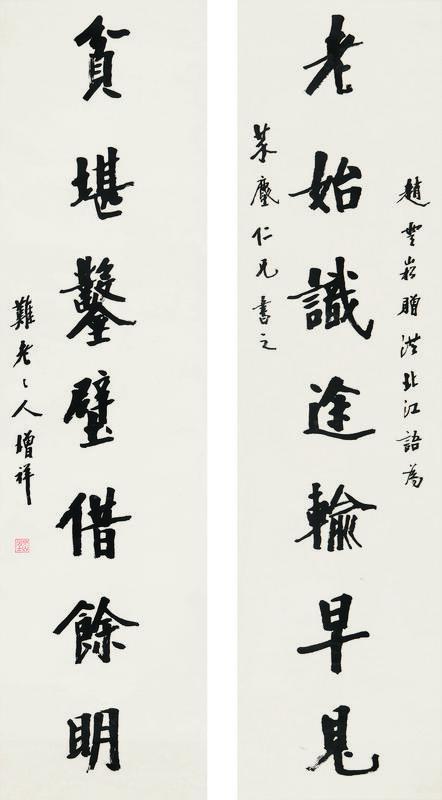 趙雲崧贈洪北江語為
老始識途輸早見
仁兄書之
貧堪鑿壁借餘明
難老〻人增祥